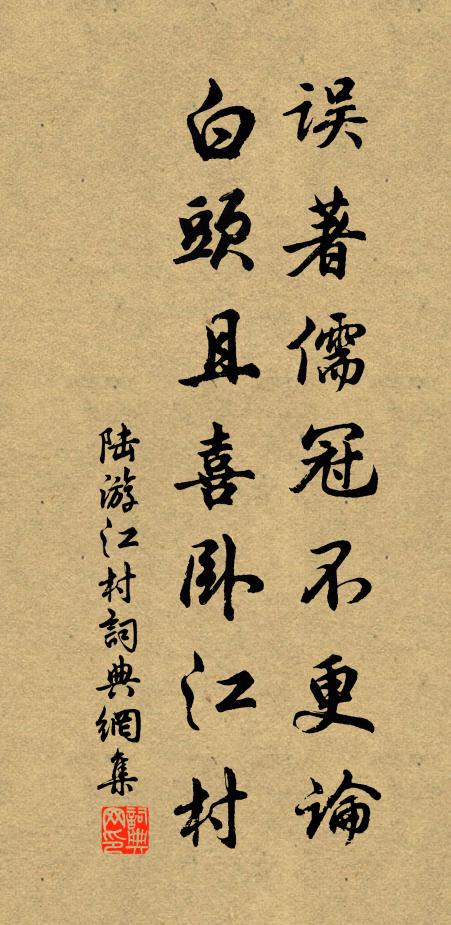 误著儒冠不更論
白頭且喜卧江村
陆游江村詞典網集
詞典
网印